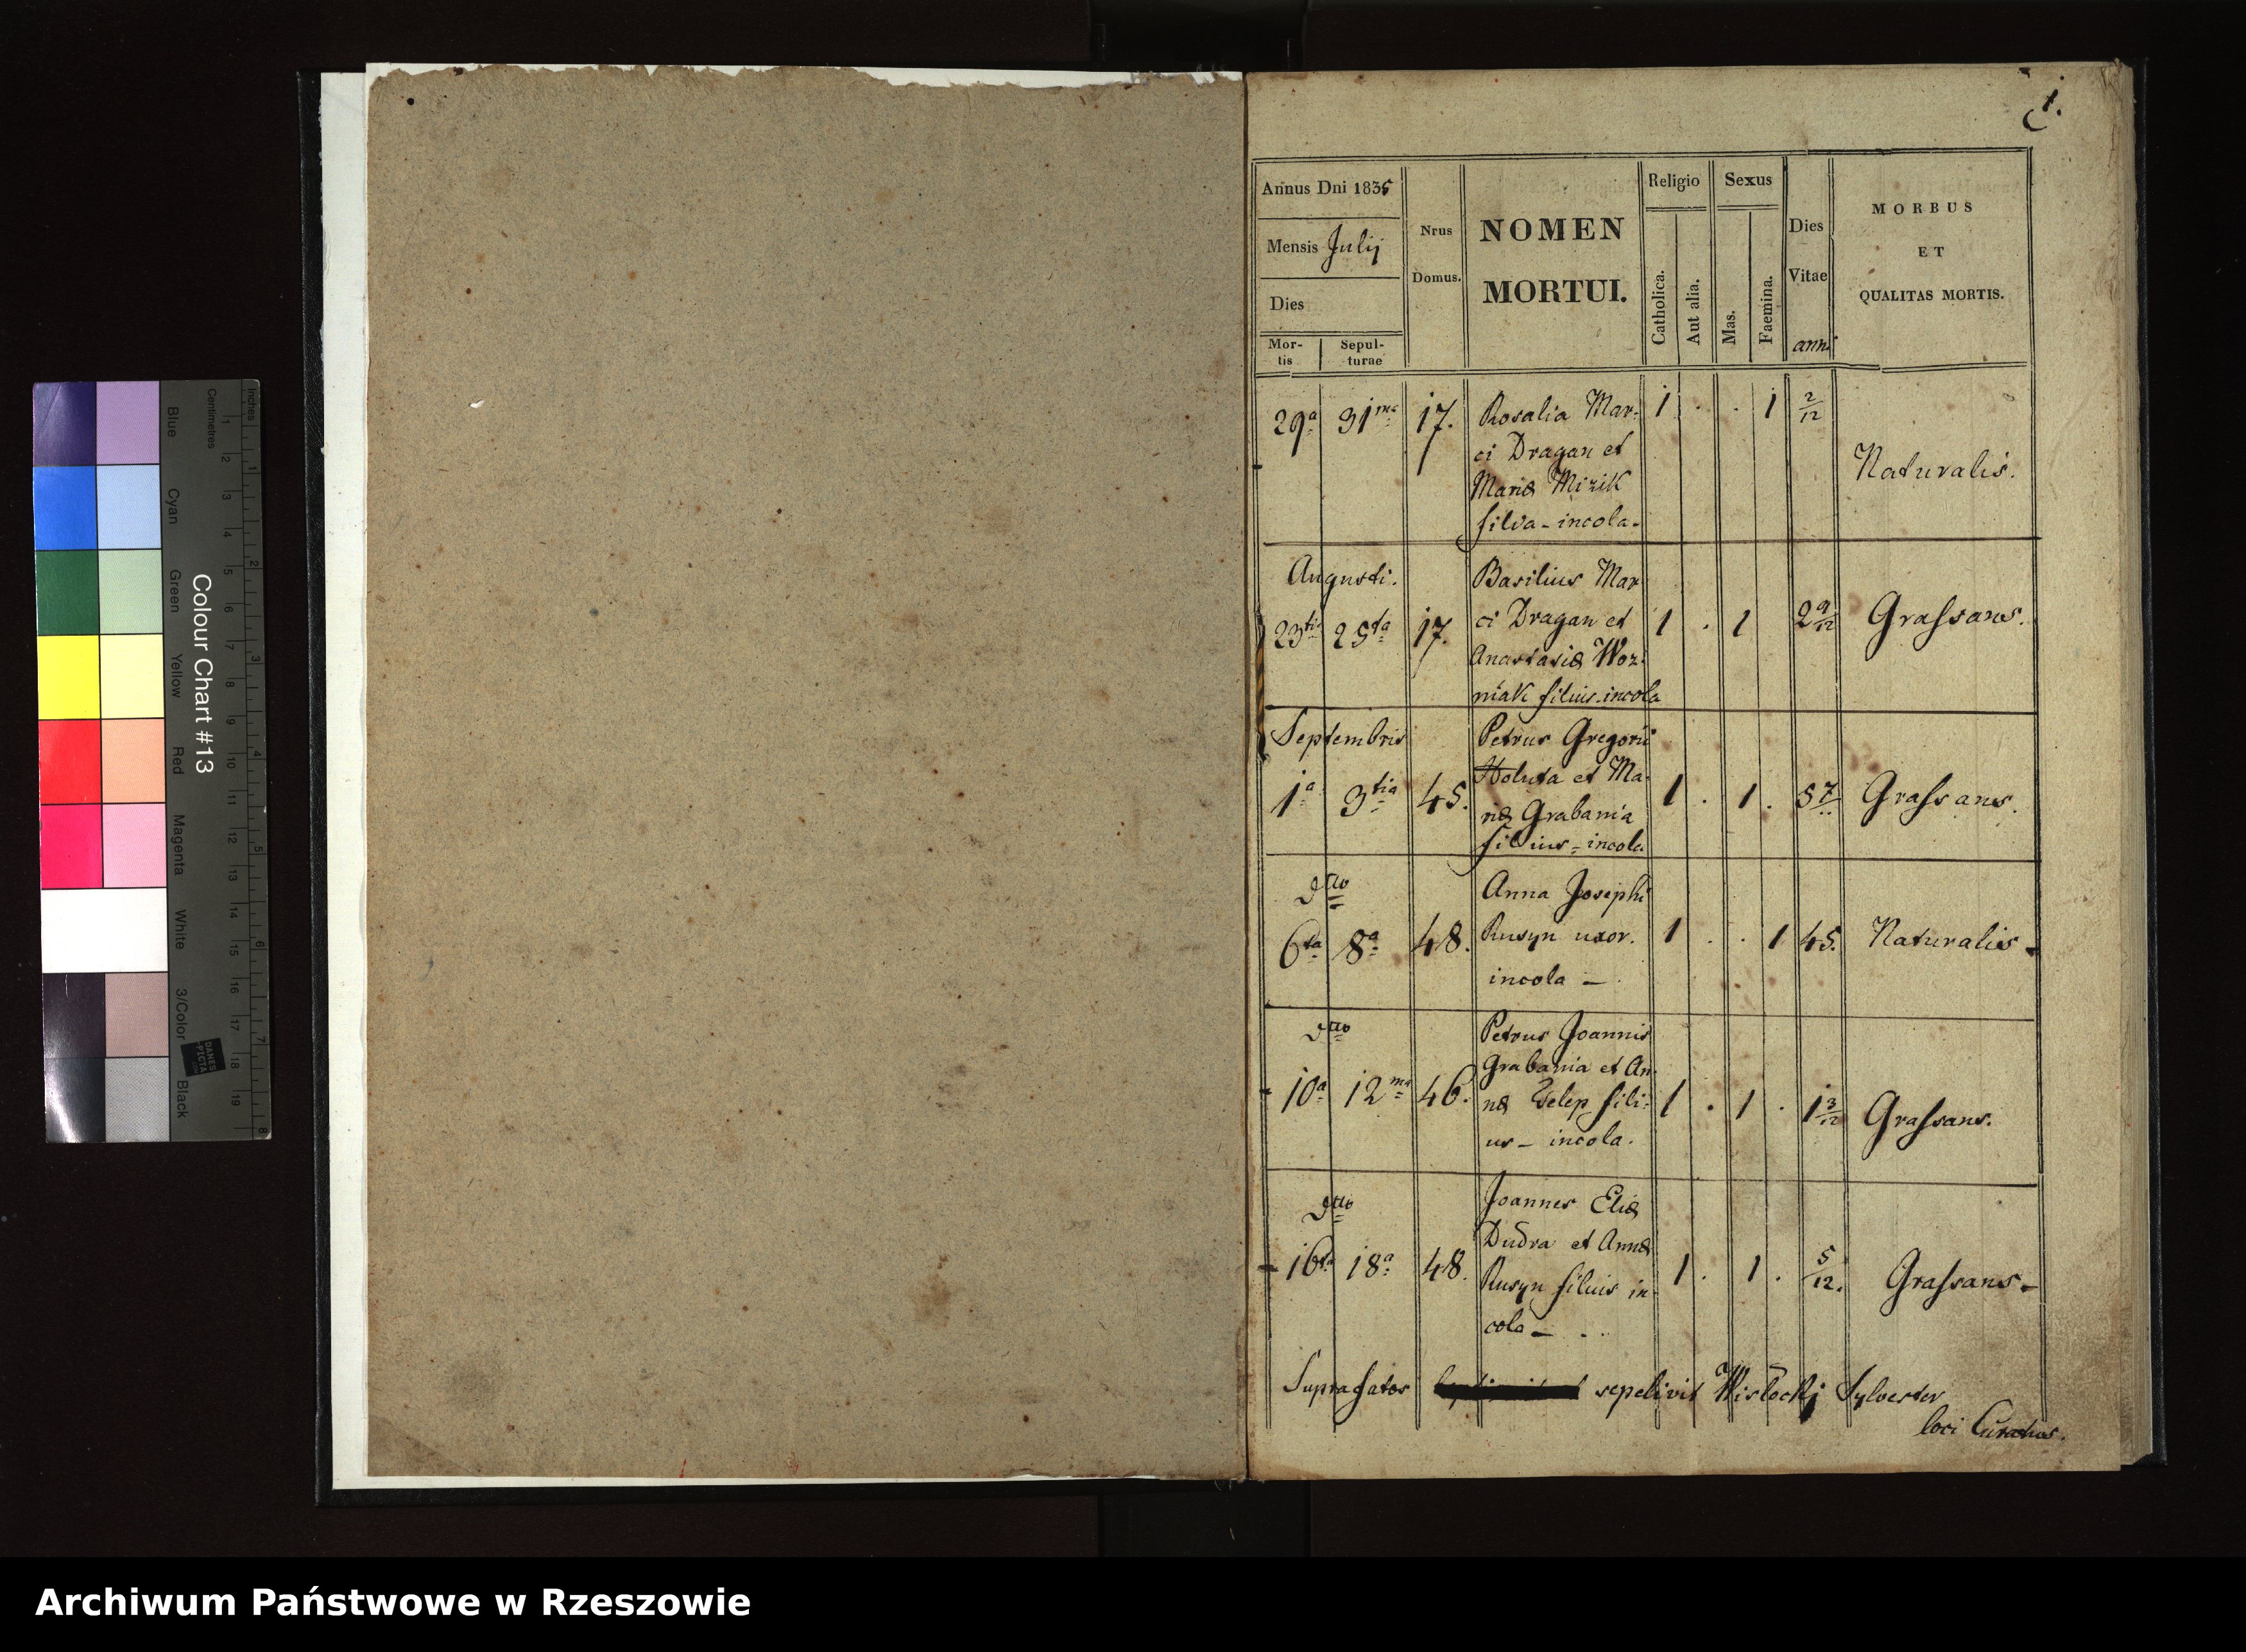 1.
Annus Dni 1835
Mensis Julij
Dies
Mor-
tis
Sepul-
turae
Nrus
Domus.
NOMEN
MORTUI.
Religio
Catholica.
Aut alia.
Sexus
Mas.
Faemina.
Dies
Vitae
anni
MORBUS
ET
QUALITAS MORTIS.
29a 31ma 17. Rosalia Mar- 1 . . 1 2/12
ci Dragan et
Mariæ Mizik Naturalis.
filia - incola -
Augusti. Basilius Mar
23tia 25ta 17. ci Dragan et 1 . 1 2 9/12 Grassans.
Anastasiæ Woz-
niak filius incola
Septembris Petrus Gregorii
Holuta et Ma-
1a 3tia 45. riæ Grabania 1 . 1 . Grassans.
filius - incola
dtto Anna Josephi
6ta 8a 48. Rusyn uxor. 1 . . 1 45. Naturalis -
incola -
dtto Petrus Joannis
Grabania et An-
10a 12ma 46. næ Telep fili- 1 . 1 . 1 3/12 Grassans.
us - incola.
dtto Joannes Eliæ
Dudra et Annæ
16ta 18a 48. Rusyn filius in- 1 . 1 . 5/12. Grassans -
cola -
Suprafatos sepelivit Wisłockj Sylvester
loci Curatus.
Colour Chart #13
Inches
Centimetres
Blue
Cyan
Green
Yellow
Red
Magenta
White
3/Color
Black
DANES
PICTA
Archiwum Państwowe w Rzeszowie